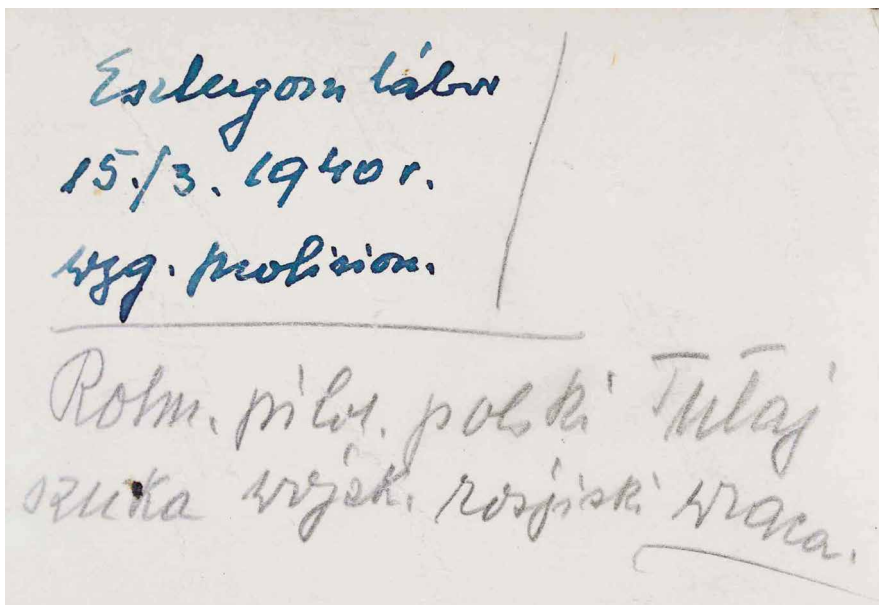 Esztergom tábor
15./3. 1940 r.
wzg.
Rotm. pilot. polski Tutaj
szuka wojsk. rosjiski wraca.